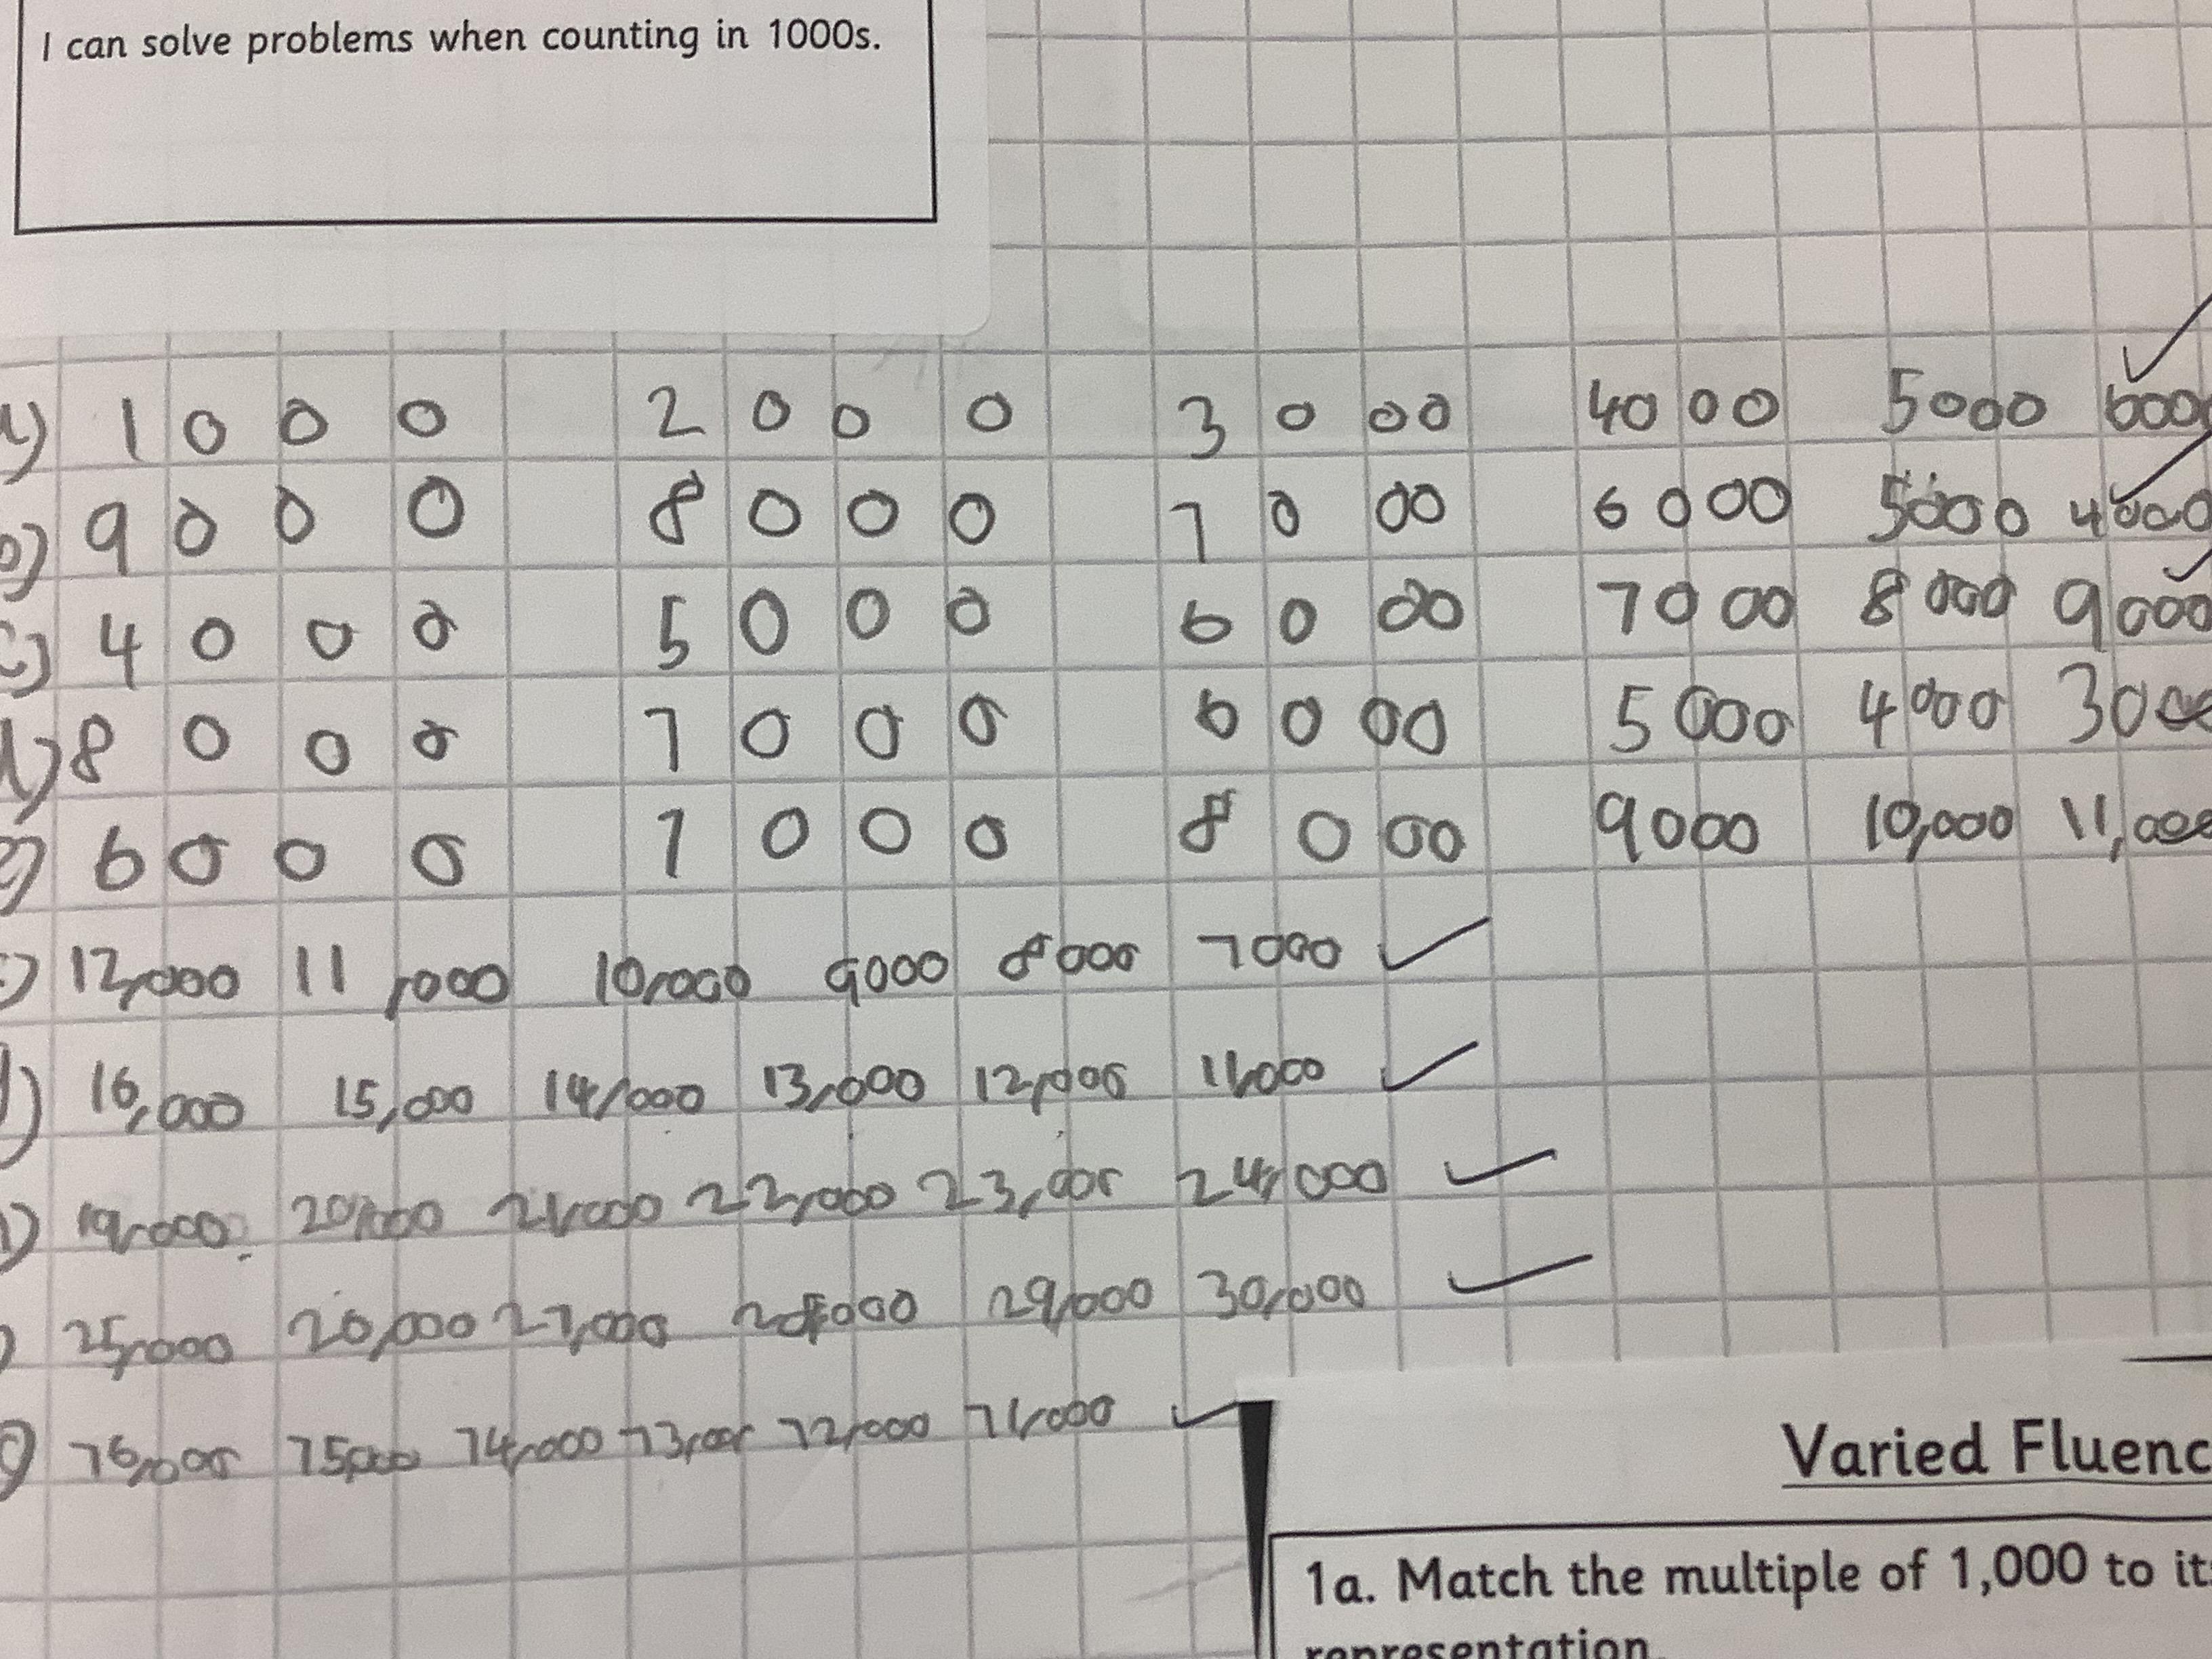 I can solve problems when counting in 1000s.
a) 1000 2000 3000 4000 5000 6000
b) 9000 8000 7000 6000 5000 4000
c) 4000 5000 6000 7000 8000 9000
d) 8000 7000 6000 5000 4000 3000
e) 6000 7000 8000 9000 10,000 11,000
12,000 11,000 10,000 9000 8000 7000
16,000 15,000 14,000 13,000 12,000 11,000
19,000 20,000 21,000 22,000 23,000 24,000
25,000 26,000 27,000 28,000 29,000 30,000
76,000 75,000 74,000 73,000 72,000 71,000
Varied Fluenc
1a. Match the multiple of 1,000 to it
representation.